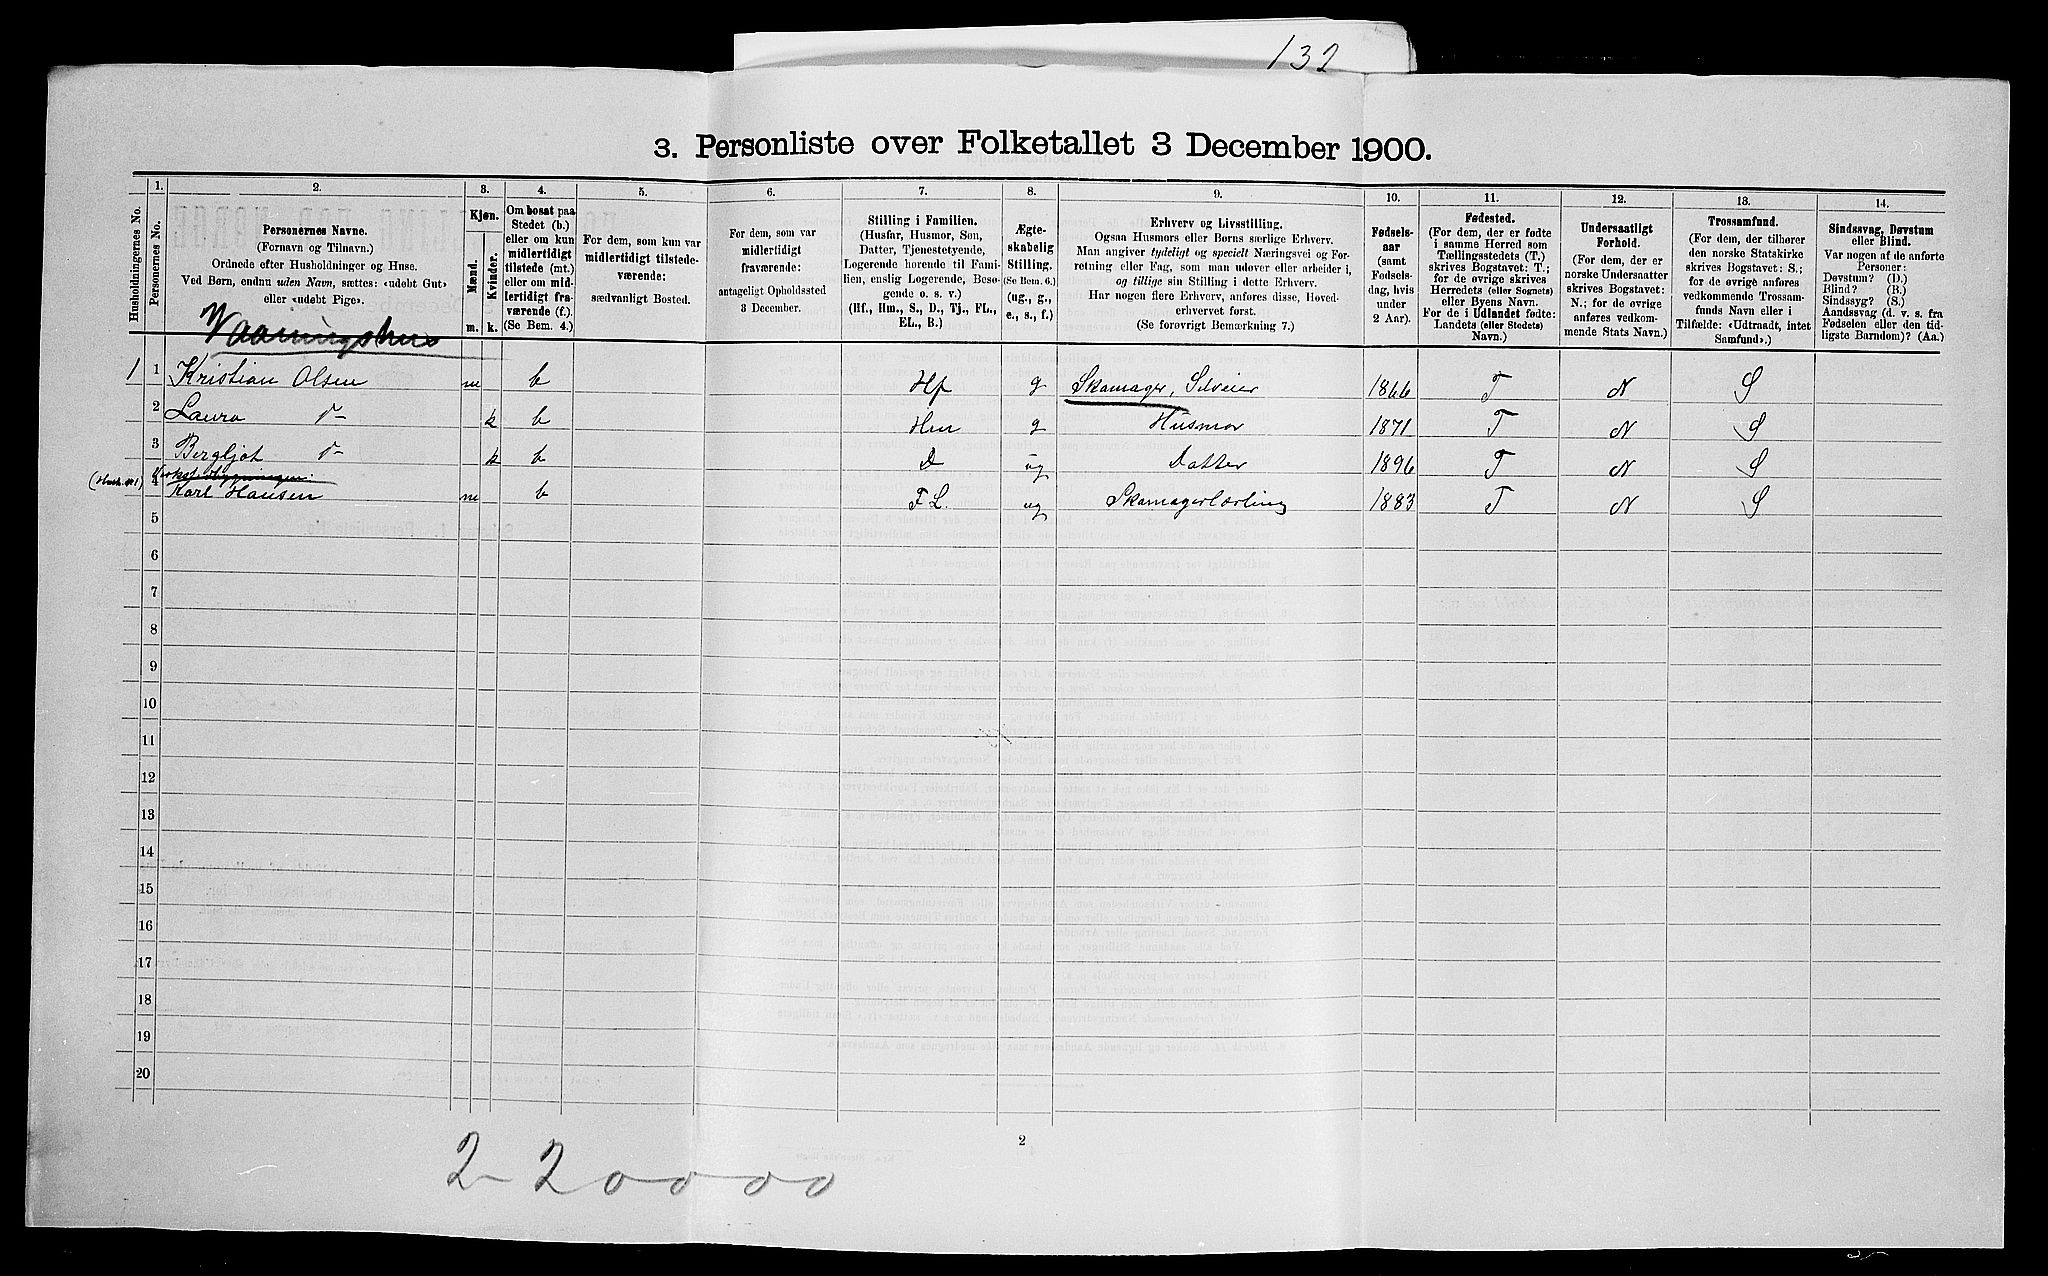 132
3. Personliste over Folketallet 3 December 1900.
Husholdningernes No.
1.
Personernes No.
2.
Personernes Navne.
(Fornavn og Tilnavn.)
Ordnede efter Husholdninger og Huse.
Ved Børn, endnu uden Navn, sættes: «udøbt Gut»
eller «udøbt Pige».
3.
Kjøn.
Mænd.
Kvinder.
m.
k.
4.
Om bosat paa
Stedet (b.)
eller om kun
midlertidigt
tilstede (mt.)
eller om mid-
lertidigt fra-
værende (f.).
(Se Bem. 4.)
5.
For dem, som kun var
midlertidigt tilstede-
værende:
sædvanligt Bosted.
6.
For dem, som var
midlertidigt
fraværende:
antageligt Opholdssted
3 December.
7.
Stilling i Familien.
(Husfar, Husmor, Søn,
Datter, Tjenestetyende,
Logerende hørende til Fami-
lien, enslig Logerende, Besø-
gende o. s. v.)
(Hf., Hm., S., D., Tj., FL.,
EL., B.)
8.
Ægte-
skabelig
Stilling.
(Se Bem. 6.)
(ug., g.,
e., s., f.)
9.
Erhverv og Livsstilling.
Ogsaa Husmors eller Børns særlige Erhverv.
Man angiver tydeligt og specielt Næringsvei og For-
retning eller Fag, som man udøver eller arbeider i,
og tillige sin Stilling i dette Erhverv.
Har nogen flere Erhverv, anføres disse, Hoved-
erhvervet først.
(Se forøvrigt Bemærkning 7.)
10.
Fødsels-
aar
(samt
Fødsels-
dag, hvis
under
2 Aar).
11.
Fødested.
(For dem, der er fødte
i samme Herred som
Tællingsstedets (T.)
skrives Bogstavet: T.;
for de øvrige skrives
Herredets (eller Sognets)
eller Byens Navn.
For de i Udlandet fødte:
Landets (eller Stedets)
Navn.)
12.
Undersaatligt
Forhold.
(For dem, der er
norske Undersaatter
skrives Bogstavet:
N.; for de øvrige
anføres vedkom-
mende Stats Navn.)
13.
Trossamfund.
(For dem, der tilhører
den norske Statskirke
skrives Bogstavet: S.;
for de øvrige anføres
vedkommende Trossam-
funds Navn eller i
Tilfælde: «Udtraadt, intet
Samfund».)
14.
Sindssvag, Døvstum
eller Blind.
Var nogen af de anførte
Personer:
Døvstum? (D.)
Blind? (B.)
Sindssyg? (S.)
Aandssvag (d. v. s. fra
Fødselen eller den tid-
ligste Barndom)? (Aa.)
Vaaningshus
1 1 Kristian Olsen m b Hf g Skomager, Selveier 1866 T N S
2 Laura d– k b Hm g Husmor 1871 T N S
3 Bergljot d– k b D ug Datter 1896 T N S
4 Karl Hansen m b FL. ug Skomagerlærling 1883 T N S
5
6
7
8
9
10
11
12
13
14
15
16
17
18
19
20
2
2-20000